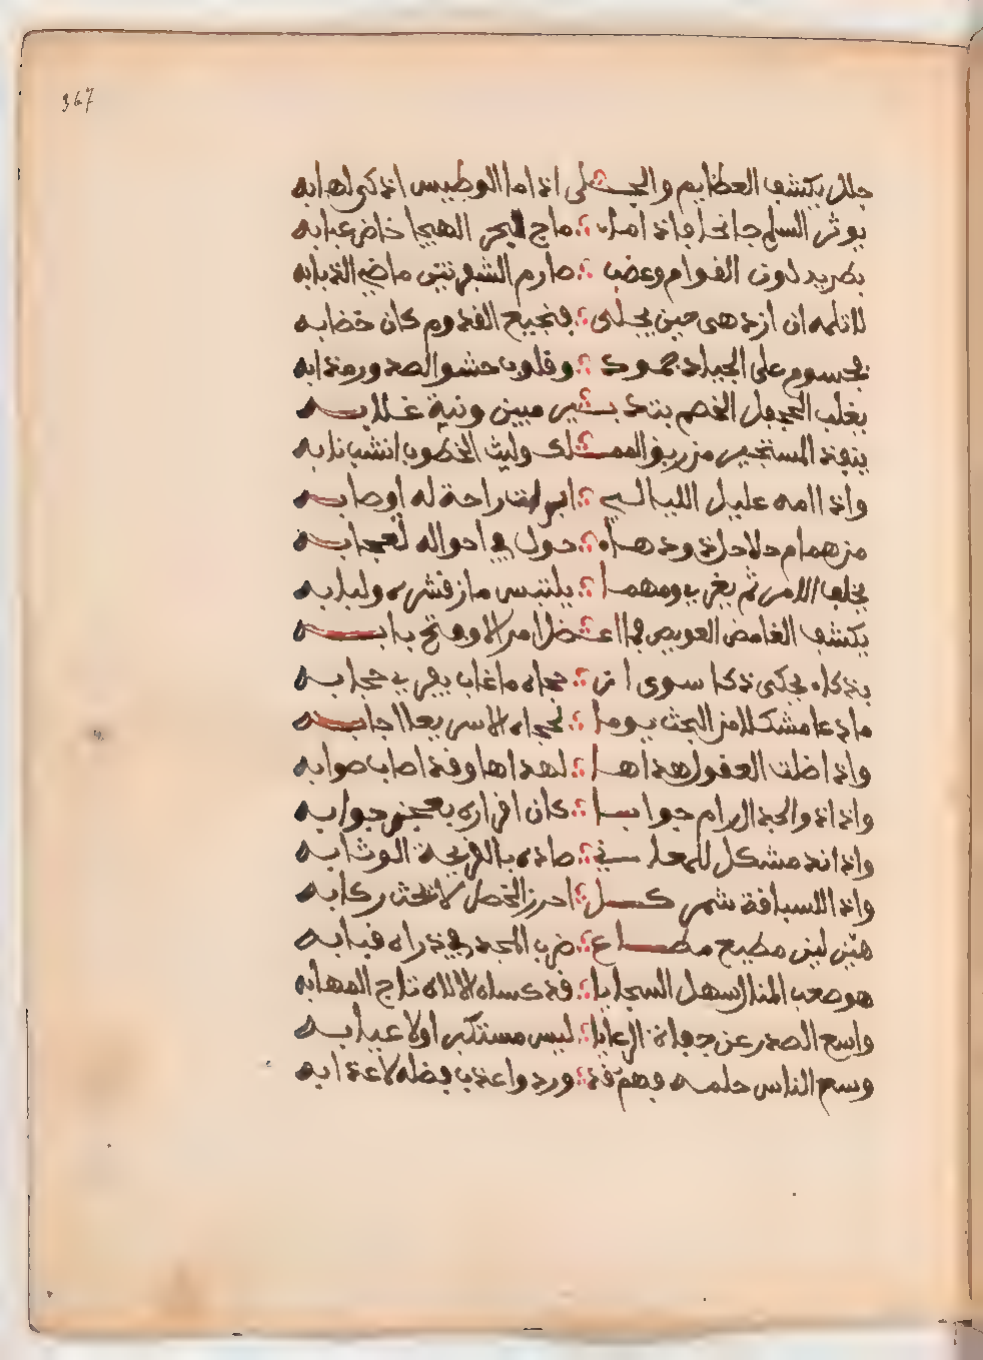 367
جلل يكشف العظايم والجلى اذ اما الوطيس اذكى لهابه
يوثر السلم جانحا فاذ اما ∴ ماج بحر الهيجا خاض عبابه
بطريد لدن القوام وعضب ∴ صارم الشفرتين ماضي الذبابه
للاتلمه ان ازدهى حين يجلى ∴ بنجيع القدوم كان خضابه
بجسوم على الجياد جمود ∴ وقلوب حشو الصدور مذابه
يغلب الجحفل الخضم بتد بير مبين ونية غلابه
ينقذ المستجير من ربو الهلك وليث الخطوب انشب نابه
واذ اامه عليل الليالي ∴ ابرات راحة له اوصابه
من همام حلاحل ذو دهاه ∴ حول في احواله لعجابه
يخلف الامر ثم يغرب ومهما ∴ يلتبس ماز قشره ولبابه
يكشف الغامض العويص فما اعضل امر الا وفتح بابه
بذكاء يحكى ذكا سوى ان ∴ حجاه ما غاب يفرى حجابه
ما دعا مشكلا من البحث يوما ∴ لحجاه الا سريعا اجابه
واذ اظلت العقول هداها ∴ لهداها وقد اصاب صوابه
واذ اذ والحجا رام جوابا ∴ كان اقراره بعجز جوابه
واذ اند مشكل للمعاني ∴ صاده بالقريحة الوثابه
واذ اللسباقة شمر كل ∴ احرز الخصل لا تحث ركابه
هين لين مطيع مطاع ∴ ضرب المجد في ذراه قبابه
هو صعب المنال سهل السجايا ∴ قد كساه الالاه تاج المهابه
واسع الصدر عن جفاة الرعايا ∴ ليس مستكبر اولا عيابه
وسع الناس حلمه فهم قد ∴ وردوا عذب فضله لا عذابه